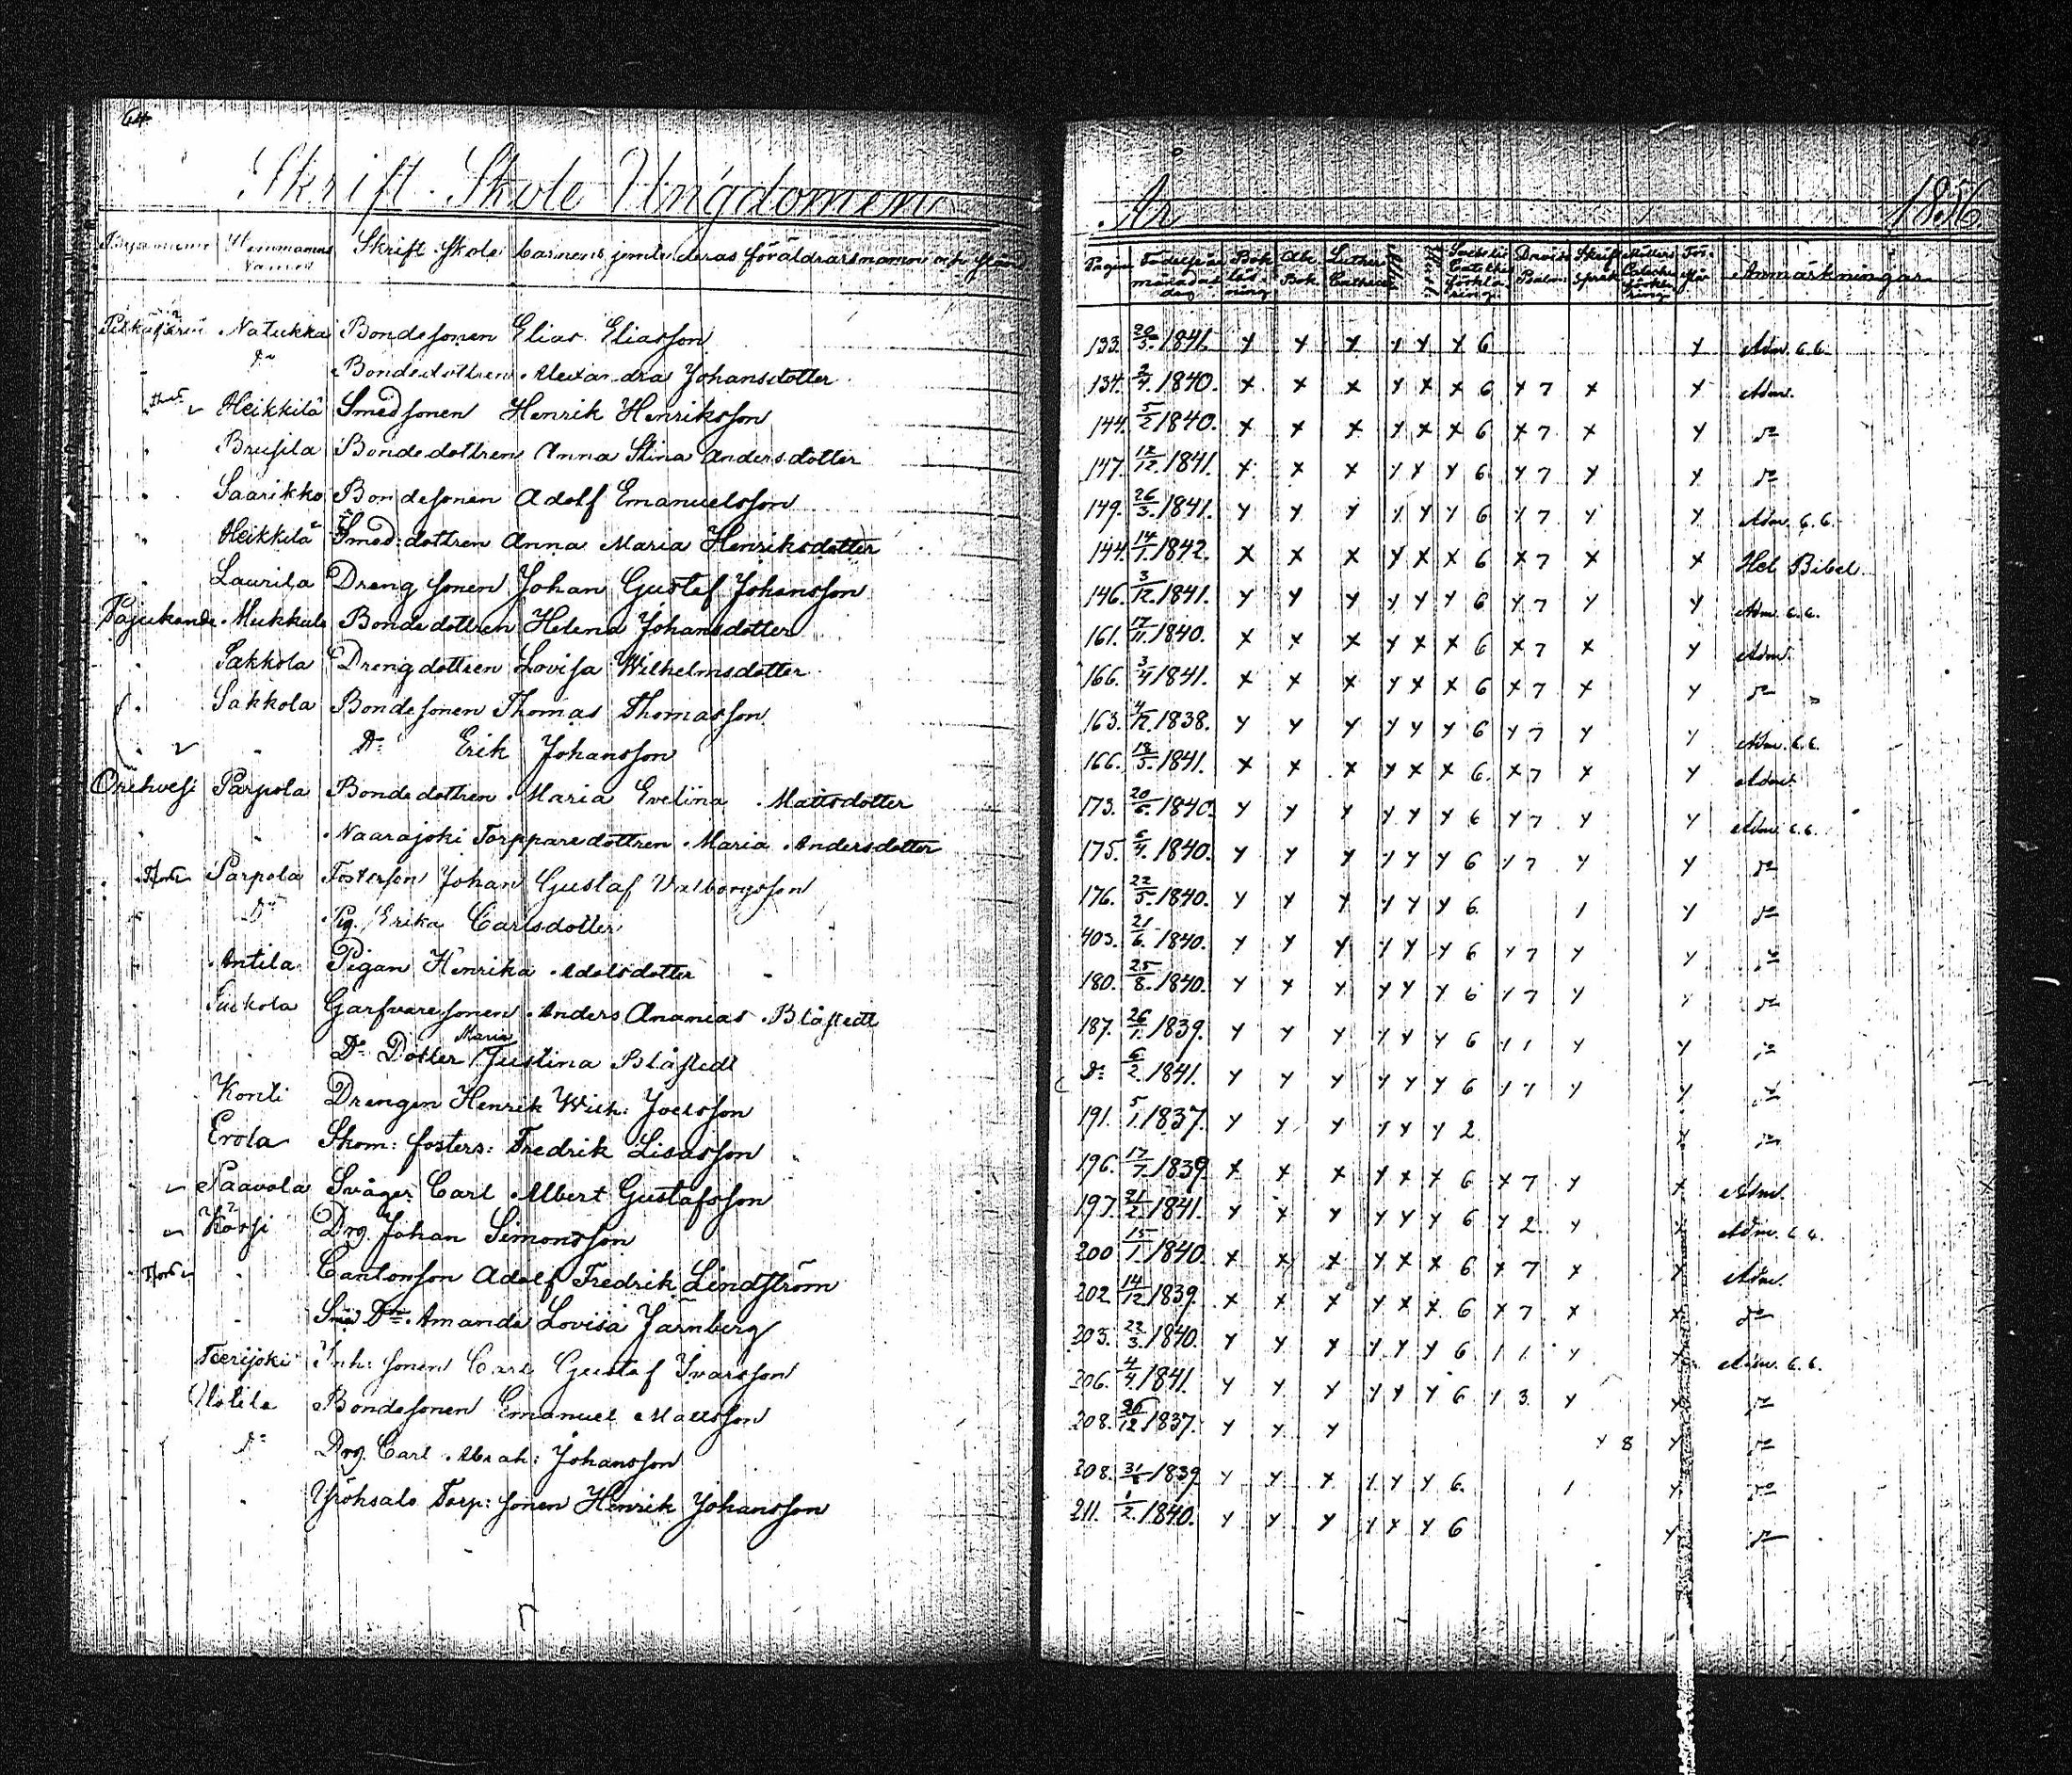 64
Skrift Skole Ungdomen
År 1856.
Hemmanens Namn Skrift Skole barnens jemte deras föräldrars namn och stånd
Pagina Födelseår månad dag Bok läsning Abc Bok Luther Cathec Davids Psalm Skrift språk Anmärkningar
Natukka Bondesonen Elias Eliasson 133. 20/5. 1841. y y y y y y 6 y Adm. 6.6.
Do Bondedottren Alexandra Johansdotter 134. 1840. x x x y x x 6 x 7 x y Adm.
Heikkilä Smedsonen Henrik Henriksson 144. 5/2 1840. x x x y x x 6 x 7 x y do
Brusila Bondedottren Anna Stina Andersdotter 147. 12/12. 1841. x x x y x y 6 y 7 y y do
Saarikko Bondesonen Adolf Emanuelsson 149. 26/3. 1841. y y y y y y 6 y 7 y y Adm. 6.6.
Heikkilä Smed: dottren Anna Maria Henriksdotter 144. 14/1. 1842. x x x y x x 6 x 7 x x Hel Bibel
Laurila Dreng sonen Johan Gustaf Johansson 146. 3/12. 1841. y y y y y y 6 y 7 y y Adm. 6.6.
Mukkula Bondedottren Helena Johansdotter 161. 17/11. 1840. x x x y x x 6 x 7 x y Adm.
Sakkola Drengdottren Lovisa Wilhelmsdotter 166. 3/4 1841. x x x y x x 6 x 7 x y do
Sakkola Bondesonen Thomas Thomasson 163. 4/12. 1838. y y y y y y 6 y 7 y y Adm. 6.6.
Do Erik Johansson 166. 18/5. 1841. x x x y x x 6. x 7 x y Adm.
Orihvesi Parpola Bondedottren Maria Evelina Mattsdotter 173. 1840. y y y y y y 6 y 7 y y Adm. 6.6.
Naarajoki Torpparedottren Maria Andersdotter 175. 1840. y y y y y y 6 y 7 y y do
Parpola Fosterson Johan Gustaf Valborgsson 176. 22/5. 1840. y y y y y y 6. 1 y do
Do Pig. Erika Carlsdotter 403. 21/6. 1840. y y y y y y 6 y 7 y y do
Antila Pigan Henrika Adolsdotter 180. 25/8. 1840. y y y y y y 6 y 7 y y do
Garfvaresonen Anders Ananias Blåstedt 187. 26/1. 1839. y y y y y y 6 y 1 y y do
Do Dotter Maria Justina Blåstedt Do 6/2. 1841. y y y y y y 6 y 7 y y do
Konti Drengen Henrik Wilh: Joelsson 191. 5/1. 1837. y y y y y y 2. y do
Erola Skom: fosters: Fredrik Lisasson 196. 17/7. 1839. x x x y x x 6 x 7 y x Adm.
Paavola Svåger Carl Albert Gustafsson 197. 21/2. 1841. y y y y y y 6 y 2 y y Adm. 6.6.
Drg. Johan Simonsson 200 15/1. 1840. x x x y x x 6 x 7 x x Adm.
Cantorson Adolf Fredrik Lindström 202. 14/12. 1839. x x x y x x 6 x 7 x x do
Amanda Lovisa Järnberg 203. 22/3. 1840. y y y y y y 6 1 1 y y Adm. 6.6.
Teerijoki Inh: sonen Carl Gustaf Ivarsson 206. 4/4. 1841. y y y y y y 6 y 3 y y do
Bondesonen Emanuel Mattsson 208. 26/12. 1837. y y y y 8 y do
Do Drg. Carl Abrah: Johansson 208. 1839. y y y y y y 6. 1 y do
Torp: sonen Henrik Johansson 211. 1/2. 1840. y y y y y y 6 y do